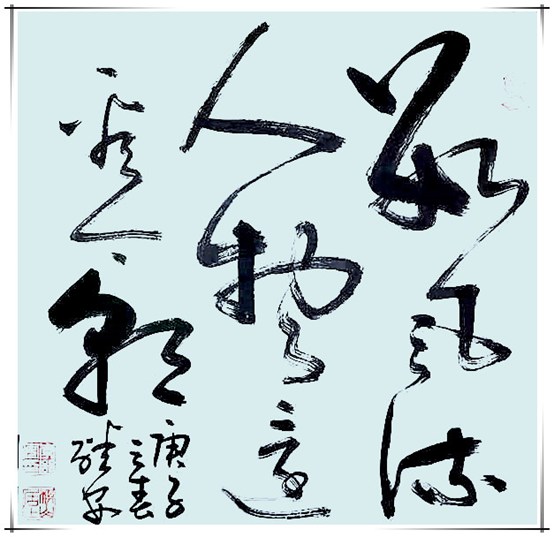 数风流
人物还
看今朝
庚子
之春